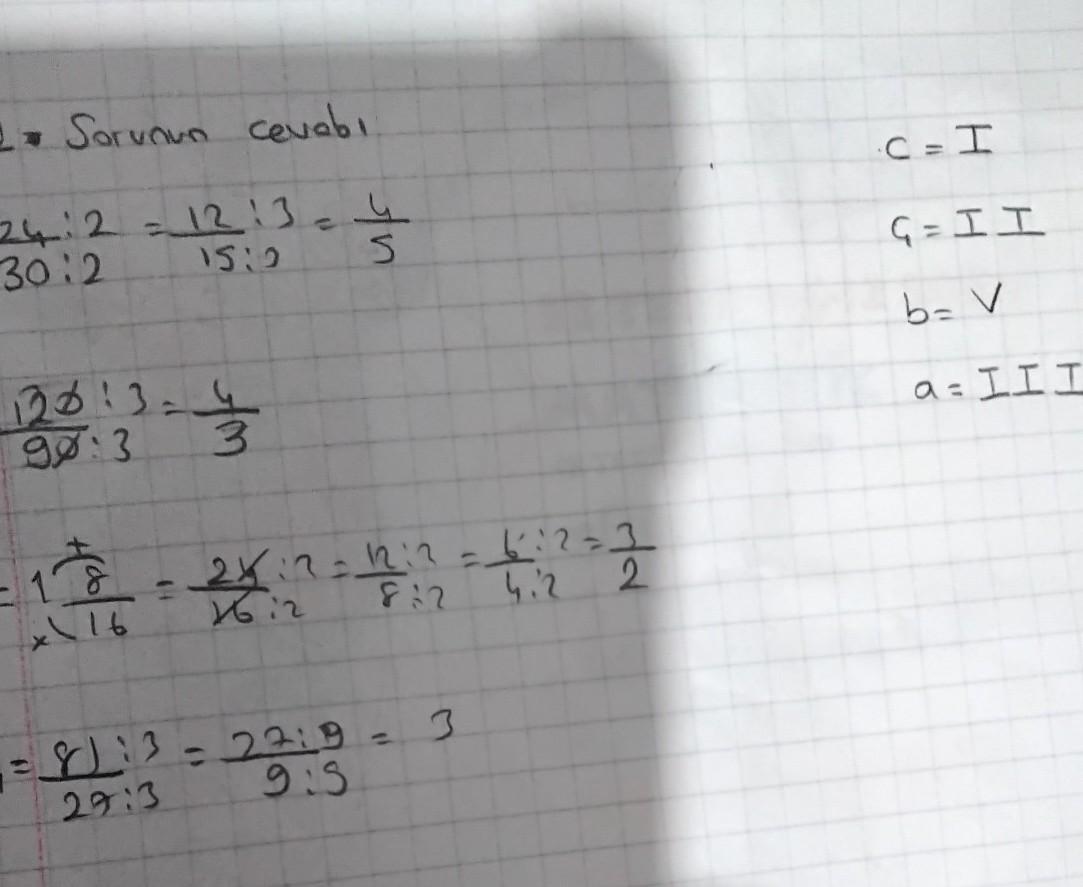 Sorunun cevabı
24:2/30:2 = 12:3/15:3 = 4/5
120:3/90:3 = 4/3
= 1 8/16 = 24:2/16:2 = 12:2/8:2 = 6:2/4:2 = 3/2
= 81:3/27:3 = 27:9/9:9 = 3
c = I
ç = II
b = V
a = III